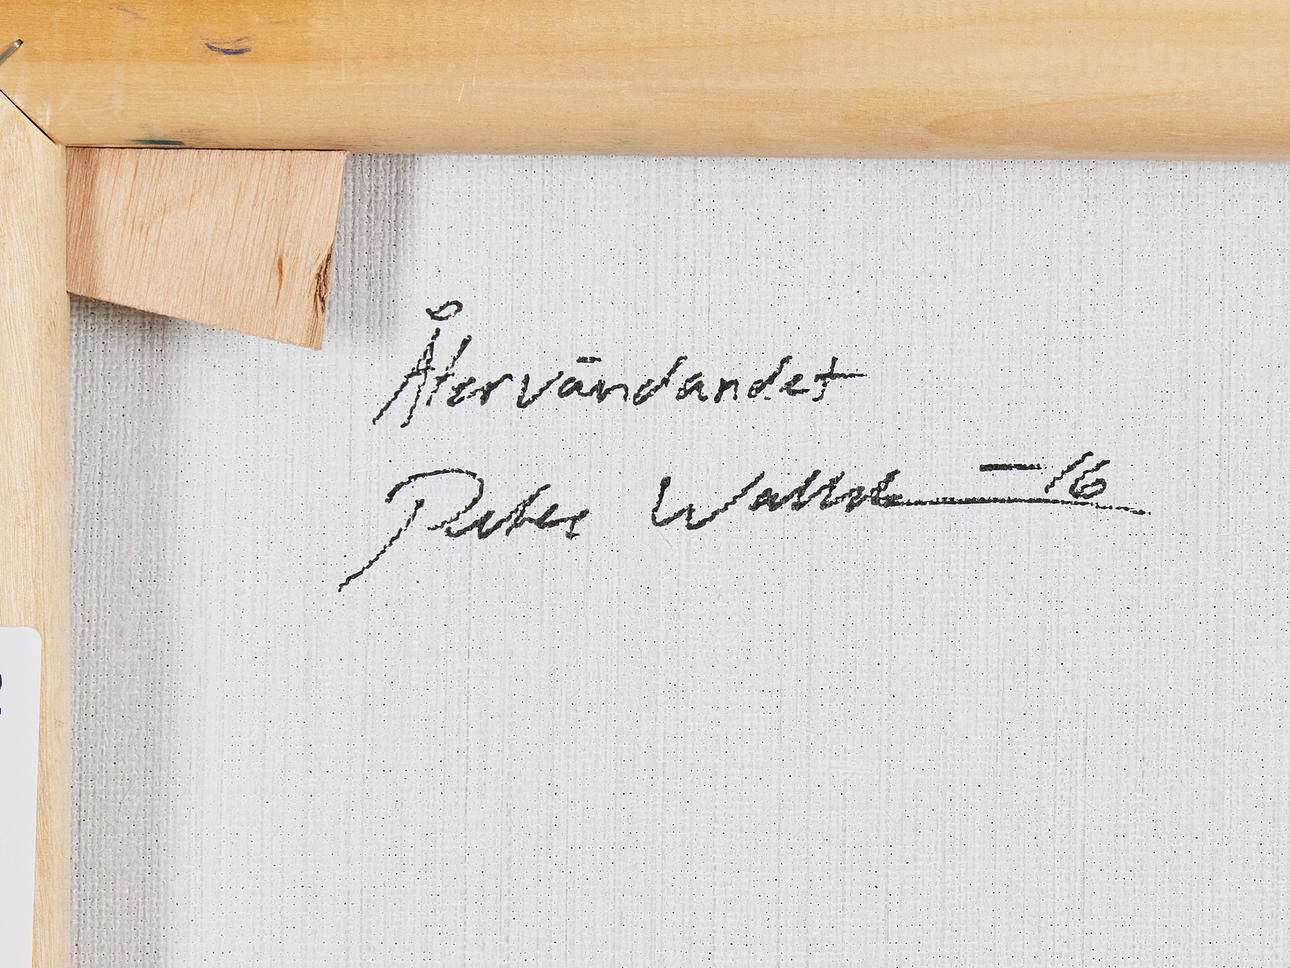 Återvändandet
Peter Wallde –16